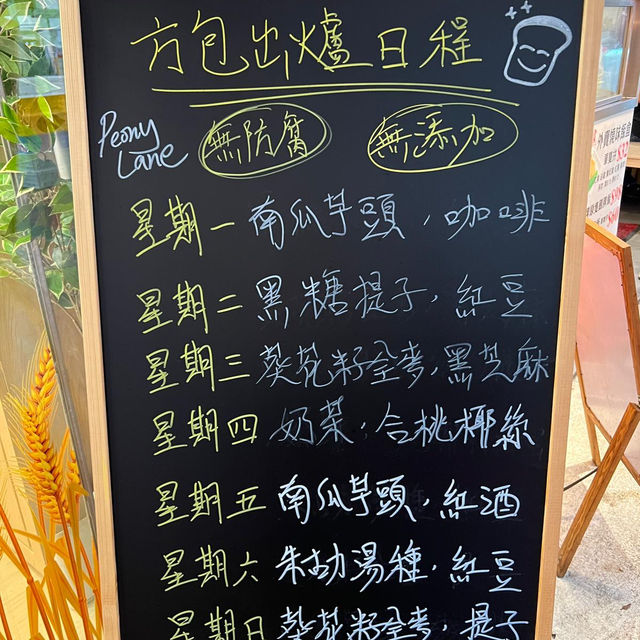 方包出爐日程
Peony Lane
無防腐 無添加
星期一 南瓜芋頭，咖啡
星期二 黑糖提子，紅豆
星期三 葵花籽全麥，黑芝麻
星期四 奶茶，合桃椰絲
星期五 南瓜芋頭，紅酒
星期六 朱古力湯種，紅豆
星期日 葵花籽全麥，提子